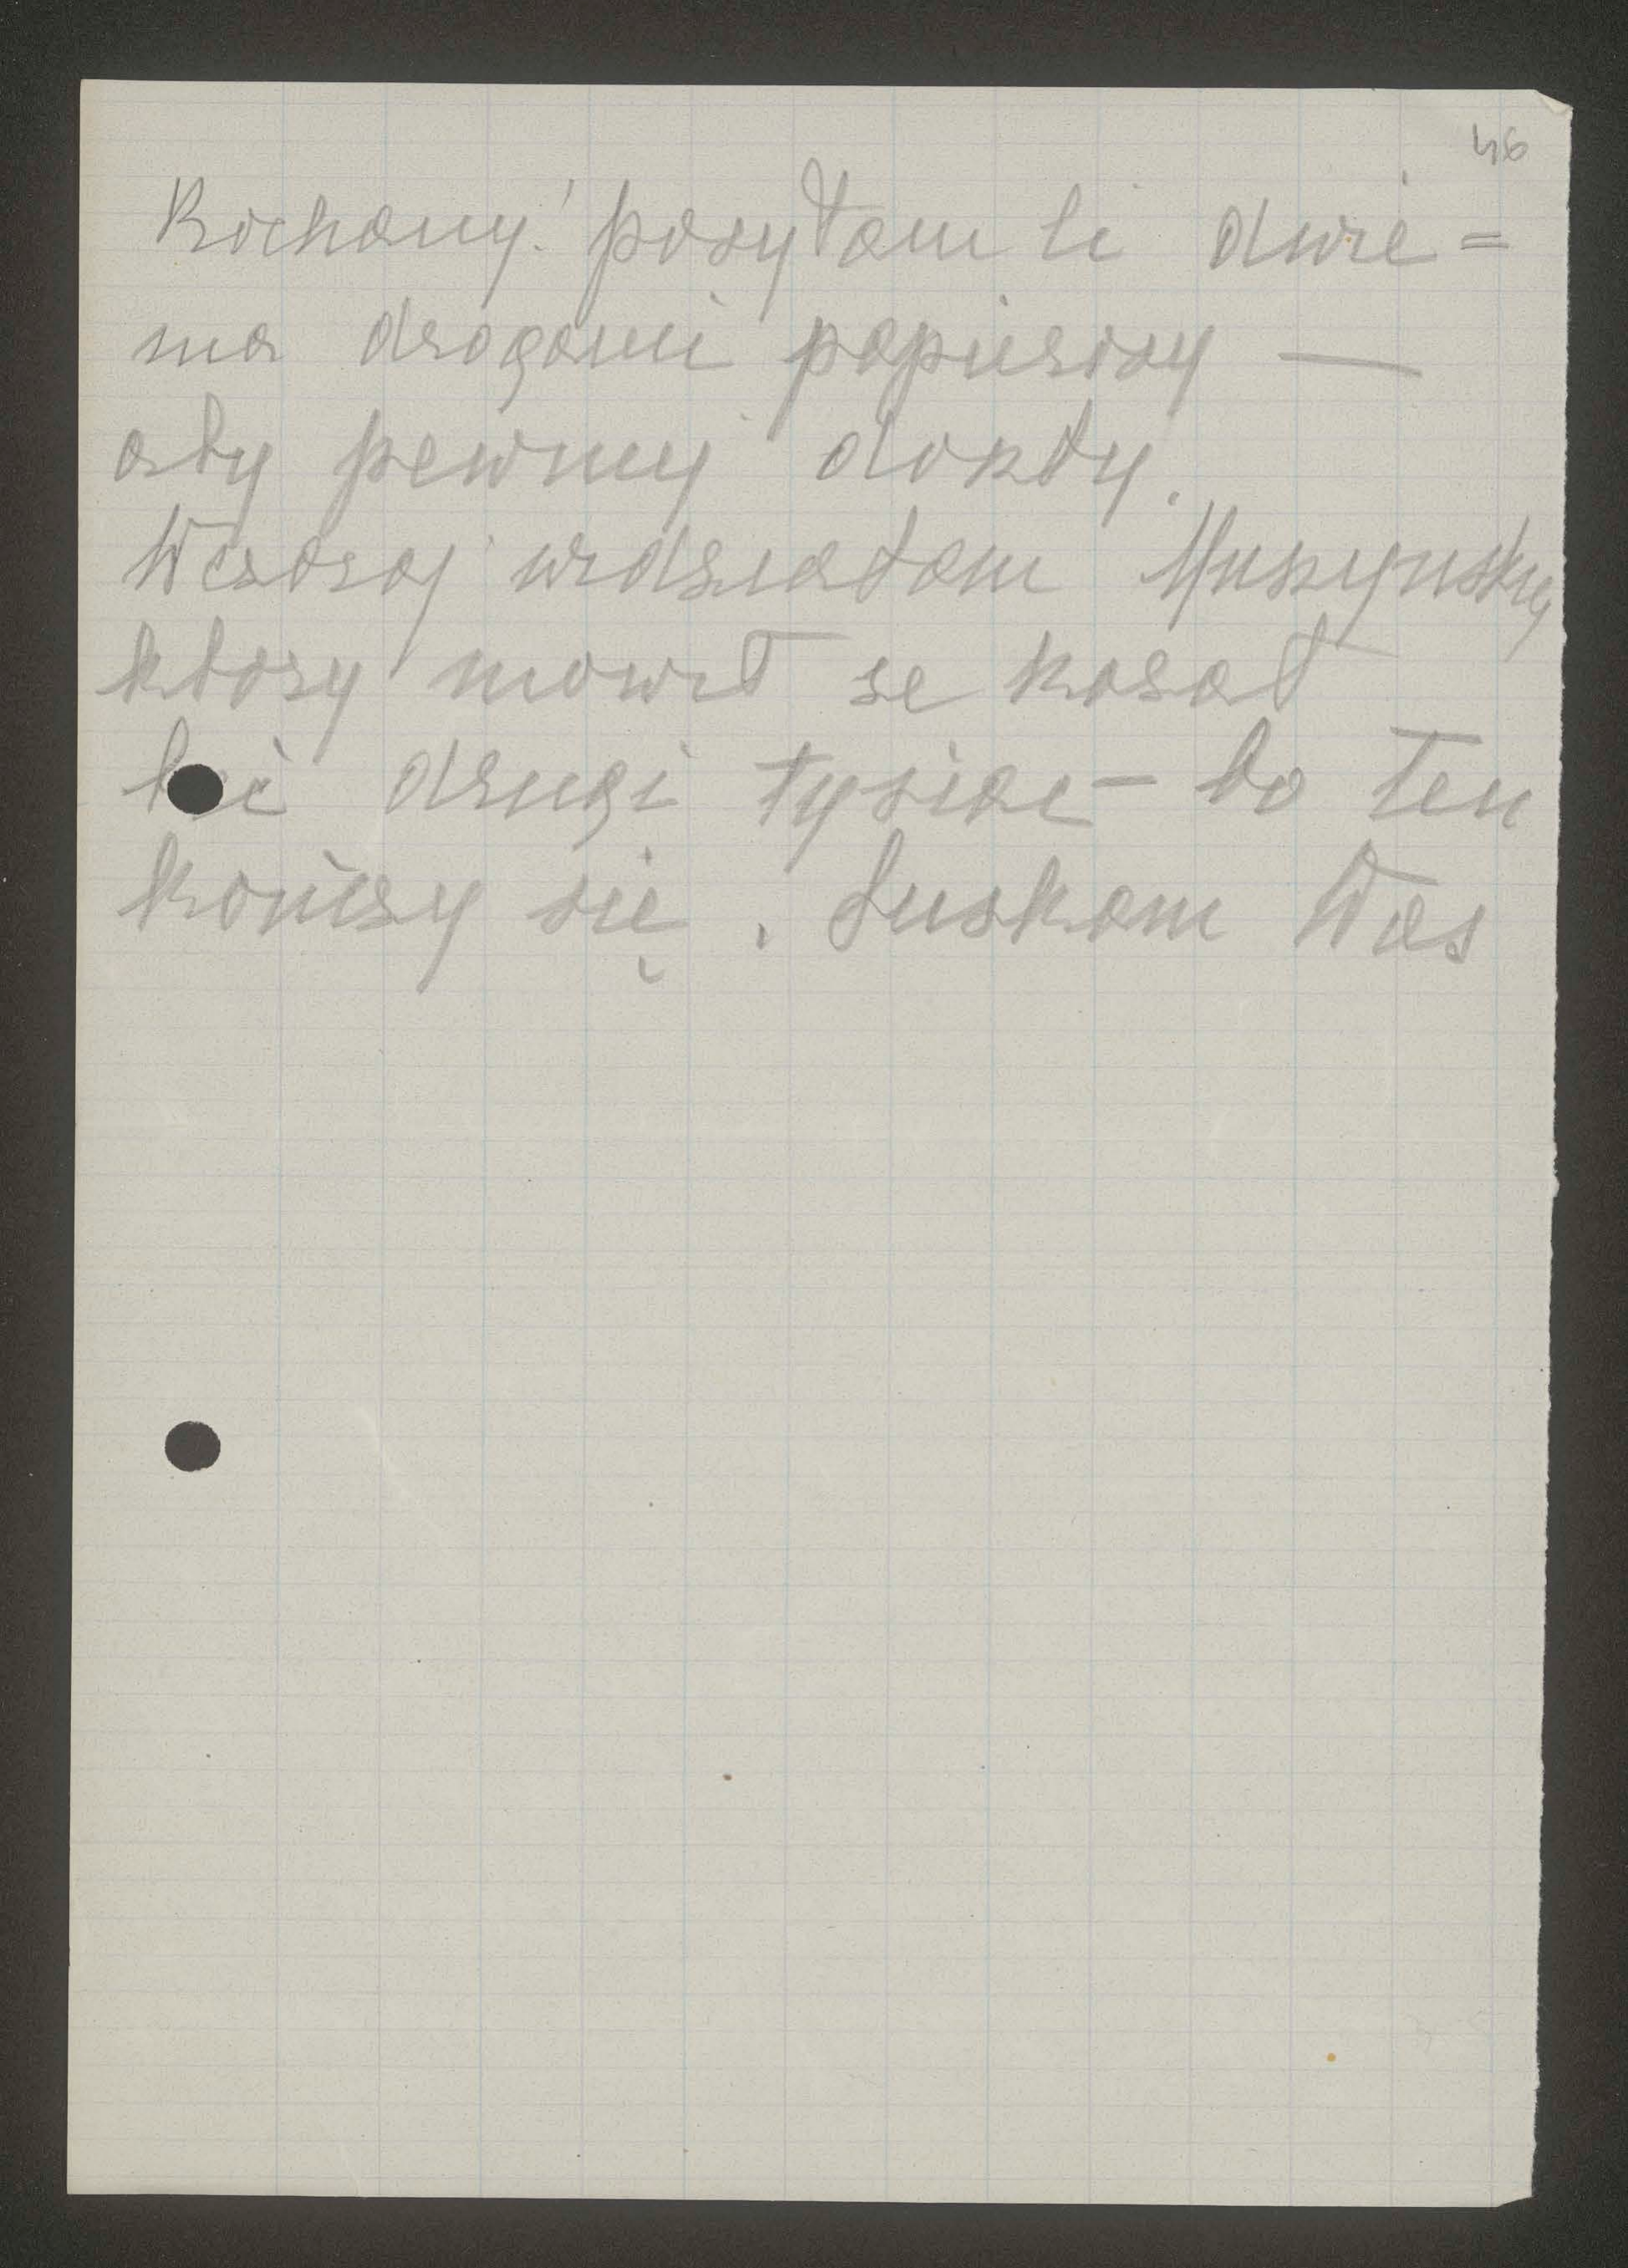 46
Kochany! posyłam Ci dwie=
ma drogami papierosy —
aby pewniej doszły.
Wczoraj widziałam
który mowił że kazał
bić drugi tysiąc – bo ten
kończy się. Ściskam Was